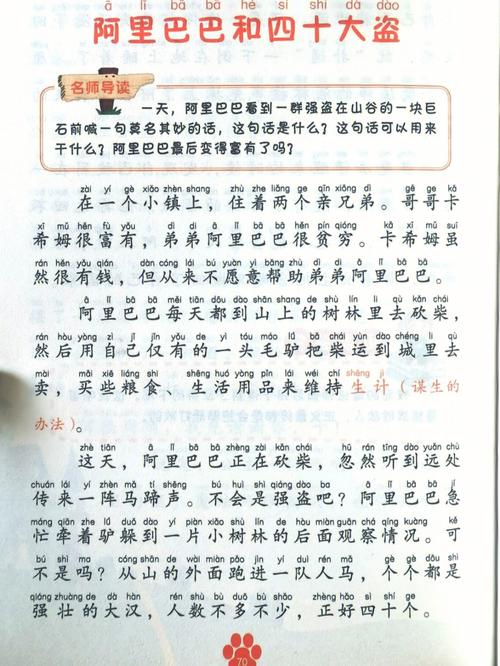 ā lǐ bā bā hé sì shí dà dào
阿里巴巴和四十大盗
名师导读
一天，阿里巴巴看到一群强盗在山谷的一块巨
石前喊一句莫名其妙的话，这句话是什么？这句话可以用来
干什么？阿里巴巴最后变得富有了吗？
zài yí gè xiǎo zhèn shang zhù zhe liǎng ge qīn xiōng dì gē ge kǎ
在一个小镇上，住着两个亲兄弟。哥哥卡
xī mǔ hěn fù yǒu dì di ā lǐ bā bā hěn pín qióng kǎ xī mǔ suī
希姆很富有，弟弟阿里巴巴很贫穷。卡希姆虽
rán hěn yǒu qián dàn cóng lái bú yuàn yì bāng zhù dì di ā lǐ bā bā
然很有钱，但从来不愿意帮助弟弟阿里巴巴。
ā lǐ bā bā měi tiān dōu dào shān shang de shù lín li qù kǎn chái
阿里巴巴每天都到山上的树林里去砍柴，
rán hòu yòng zì jǐ jǐn yǒu de yì tóu máo lǘ bǎ chái yùn dào chéng li qù
然后用自己仅有的一头毛驴把柴运到城里去
mài mǎi xiē liáng shi shēng huó yòng pǐn lái wéi chí shēng jì
卖，买些粮食、生活用品来维持生计（谋生的
办法）。
zhè tiān ā lǐ bā bā zhèng zài kǎn chái hū rán tīng dào yuǎn chù
这天，阿里巴巴正在砍柴，忽然听到远处
chuán lái yí zhèn mǎ tí shēng bú huì shì qiáng dào ba ā lǐ bā bā jí
传来一阵马蹄声。不会是强盗吧？阿里巴巴急
máng qiān zhe lǘ duǒ dào yí piàn xiǎo shù lín de hòu miàn guān chá qíng kuàng kě
忙牵着驴躲到一片小树林的后面观察情况。可
bú shì ma cóng shān de wài miàn pǎo jìn yí duì rén mǎ gè gè dōu shì
不是吗？从山的外面跑进一队人马，个个都是
qiáng zhuàng de dà hàn rén shù bù duō bù shǎo zhèng hǎo sì shí gè
强壮的大汉，人数不多不少，正好四十个。
70